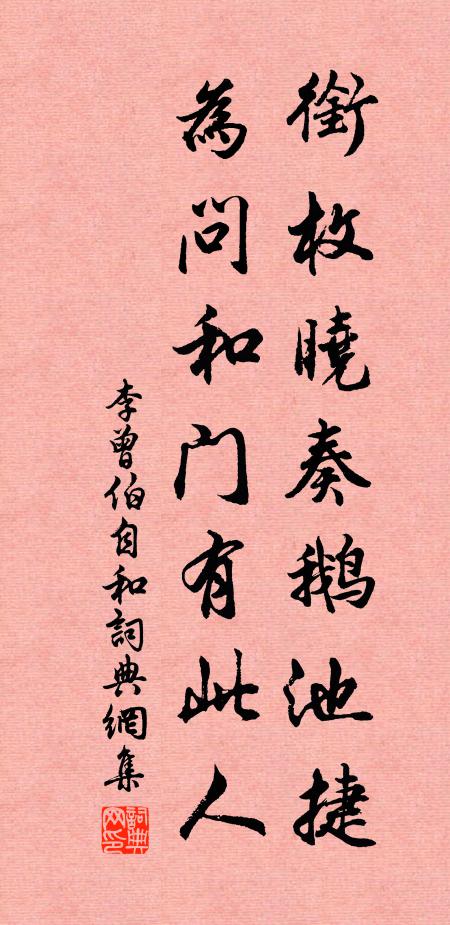 銜枚曉奏鵝池捷
為問和門有此人
李曾伯自和詞典網集
詞典网印